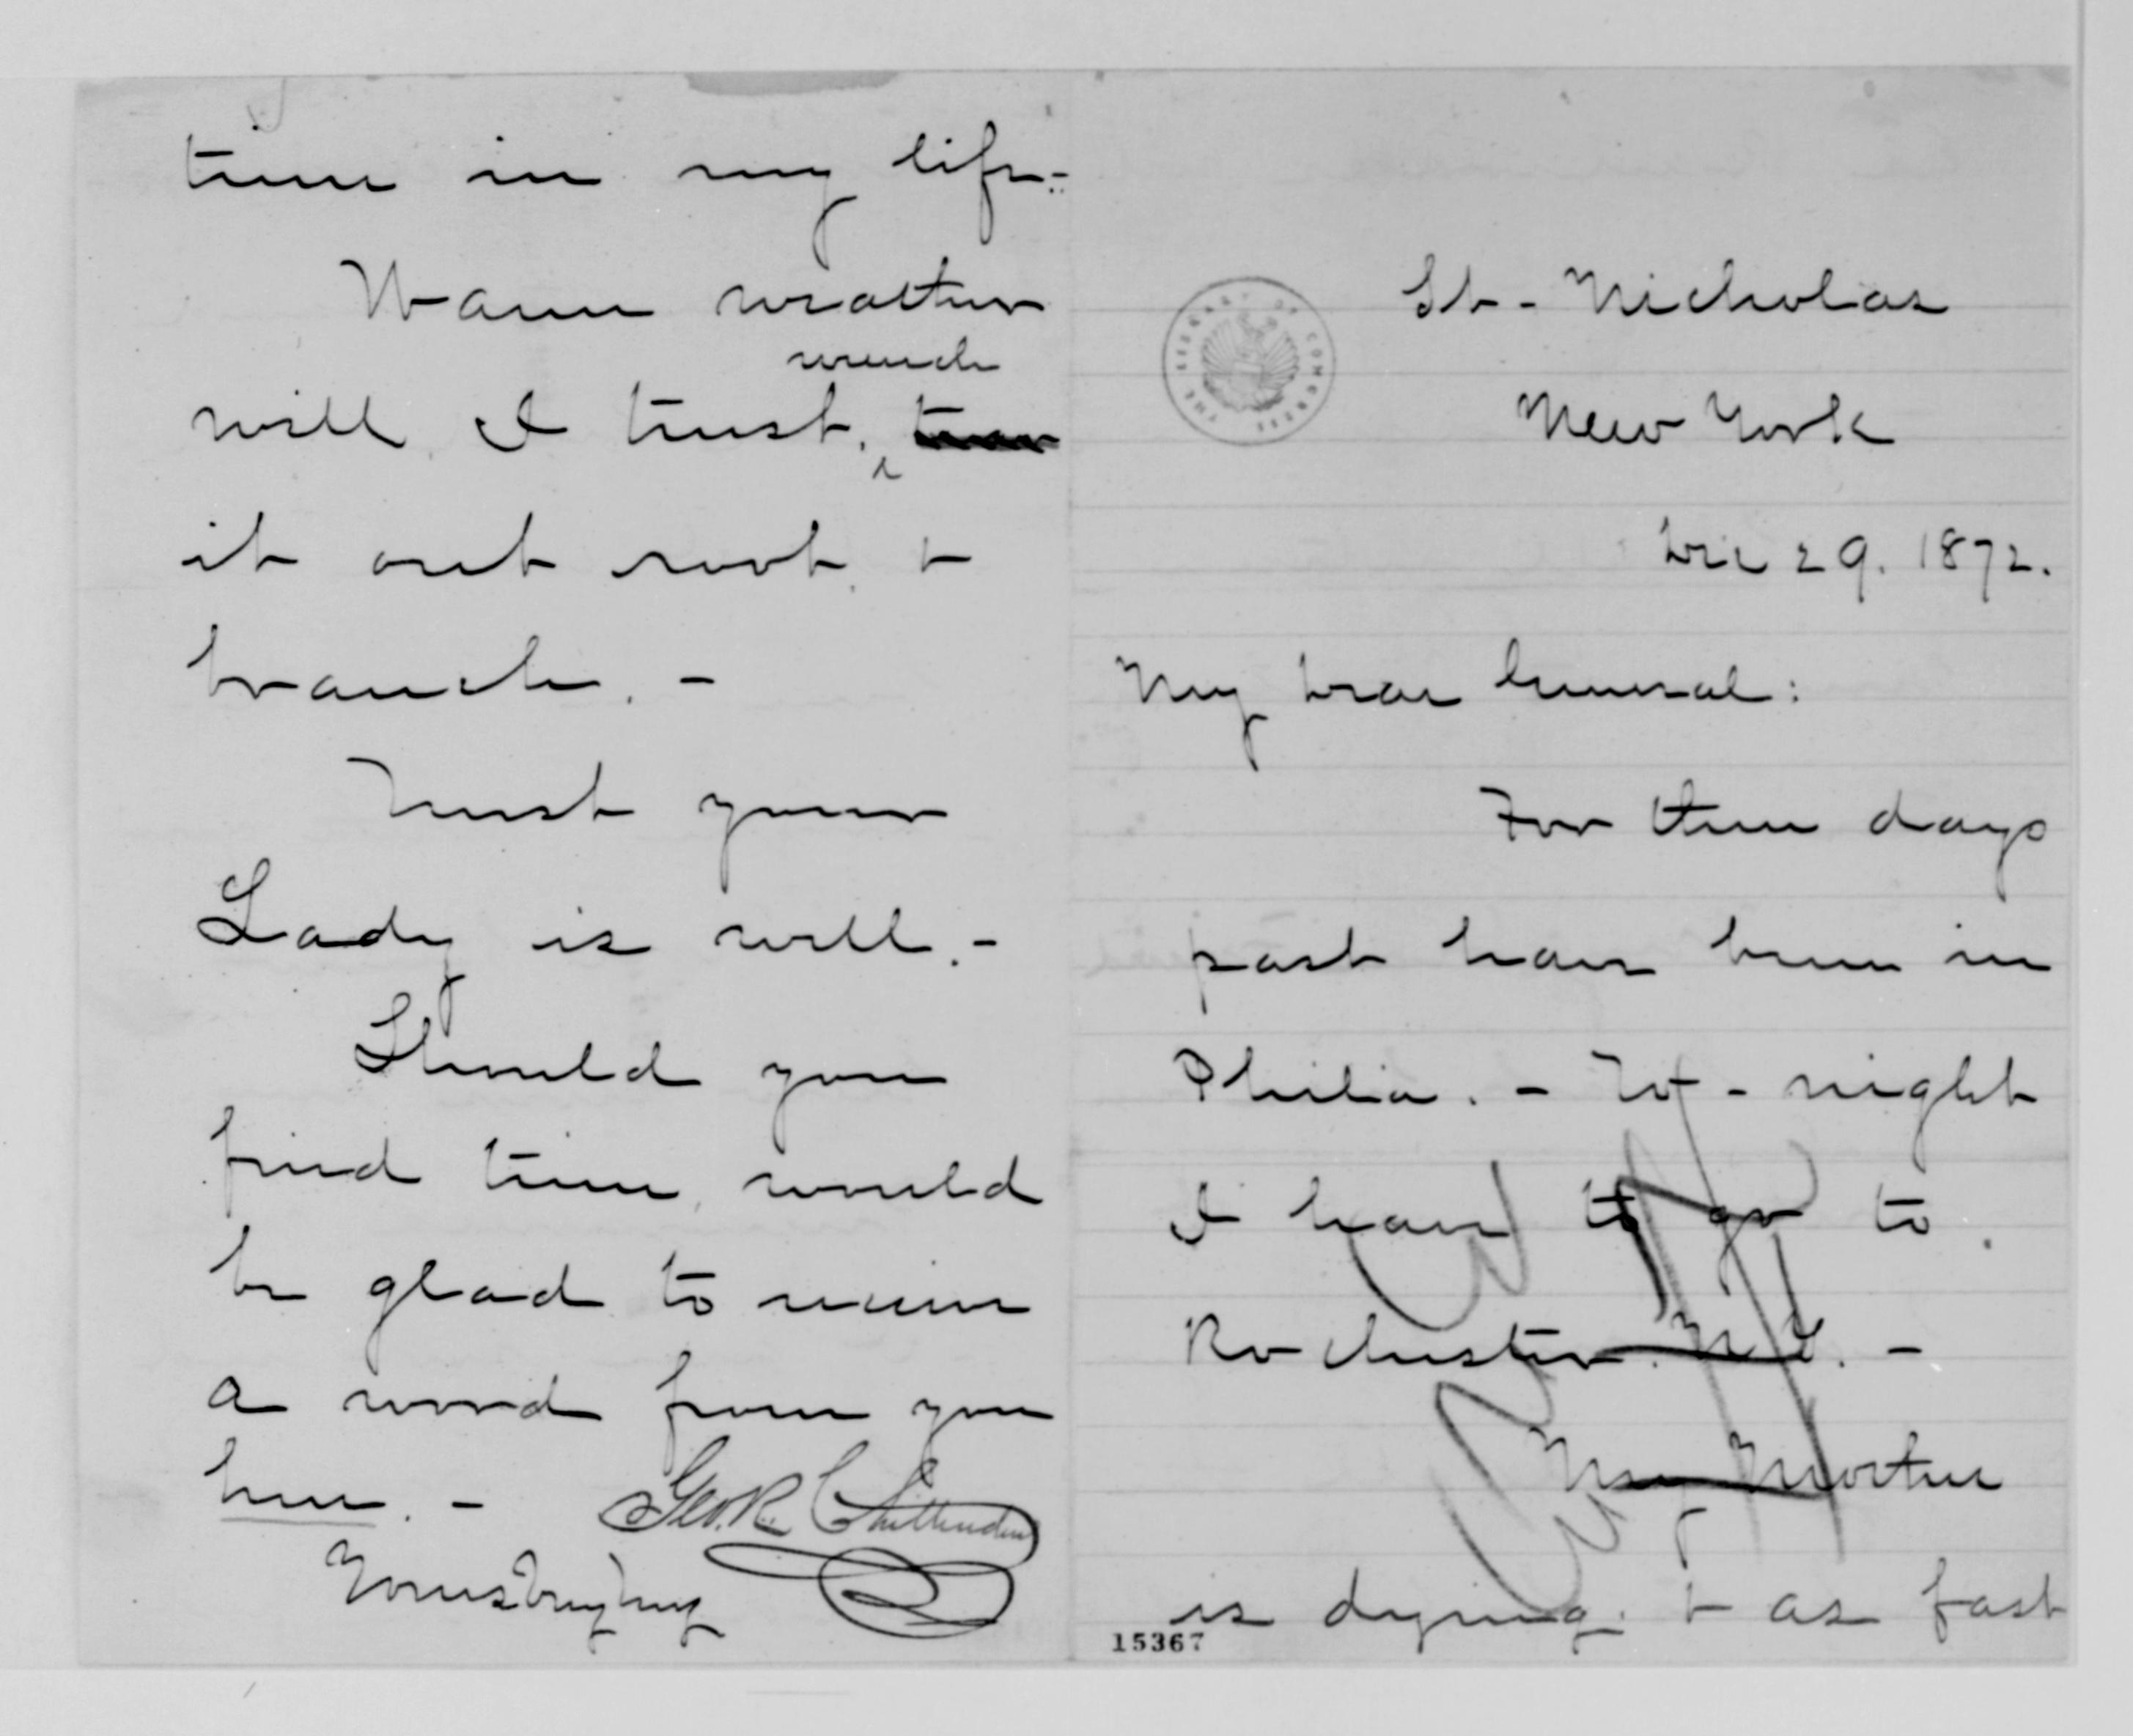 time in my life.-
Warm weather
wrench
will, I trust,
it out root &
branch. -
Trust your
Lady is well. -
Should you
find time, would
be glad to receive
a word from you
here. - Geo. R. Chittenden
Yours Very Truly
THE LIBRARY OF CONGRESS
St - Nicholas
New York
Dec 29. 1872.
My Dear General:
For three days
past have been in
Phila. - To-night
I have to go to
Rochester. N.Y. -
My Mother
is dying. & as fast
15367